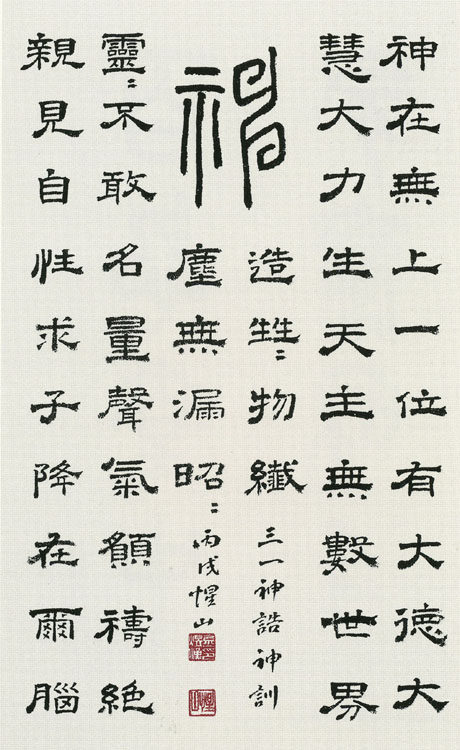 神在無上一位有大德大
慧大力生天主無數世界
神
造甡〻物纖
塵無漏昭〻
靈〻不敢名量聲氣願禱絶
親見自性求子降在爾腦
三一神誥神訓
丙戌惺山